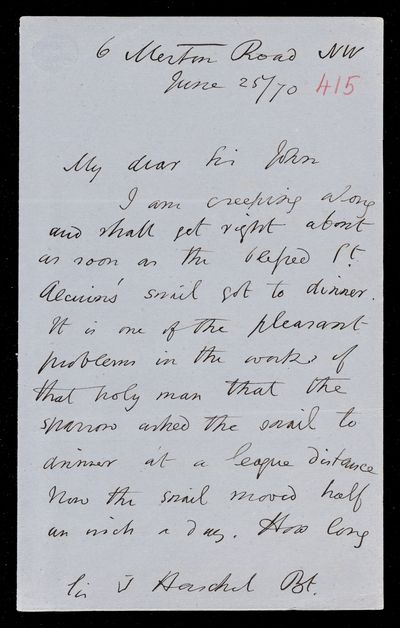 6 Merton Road NW
June 25/70 415
My dear Sir John
I am creeping along
and shall get right about
as soon as the blessed St.
Alcuin's snail got to dinner.
It is one of the pleasant
problems in the works of
that holy man that the
sparrow asked the snail to
dinner at a league distance
Now the snail moved half
an inch a day. How long
Sir J Herschel Bt.